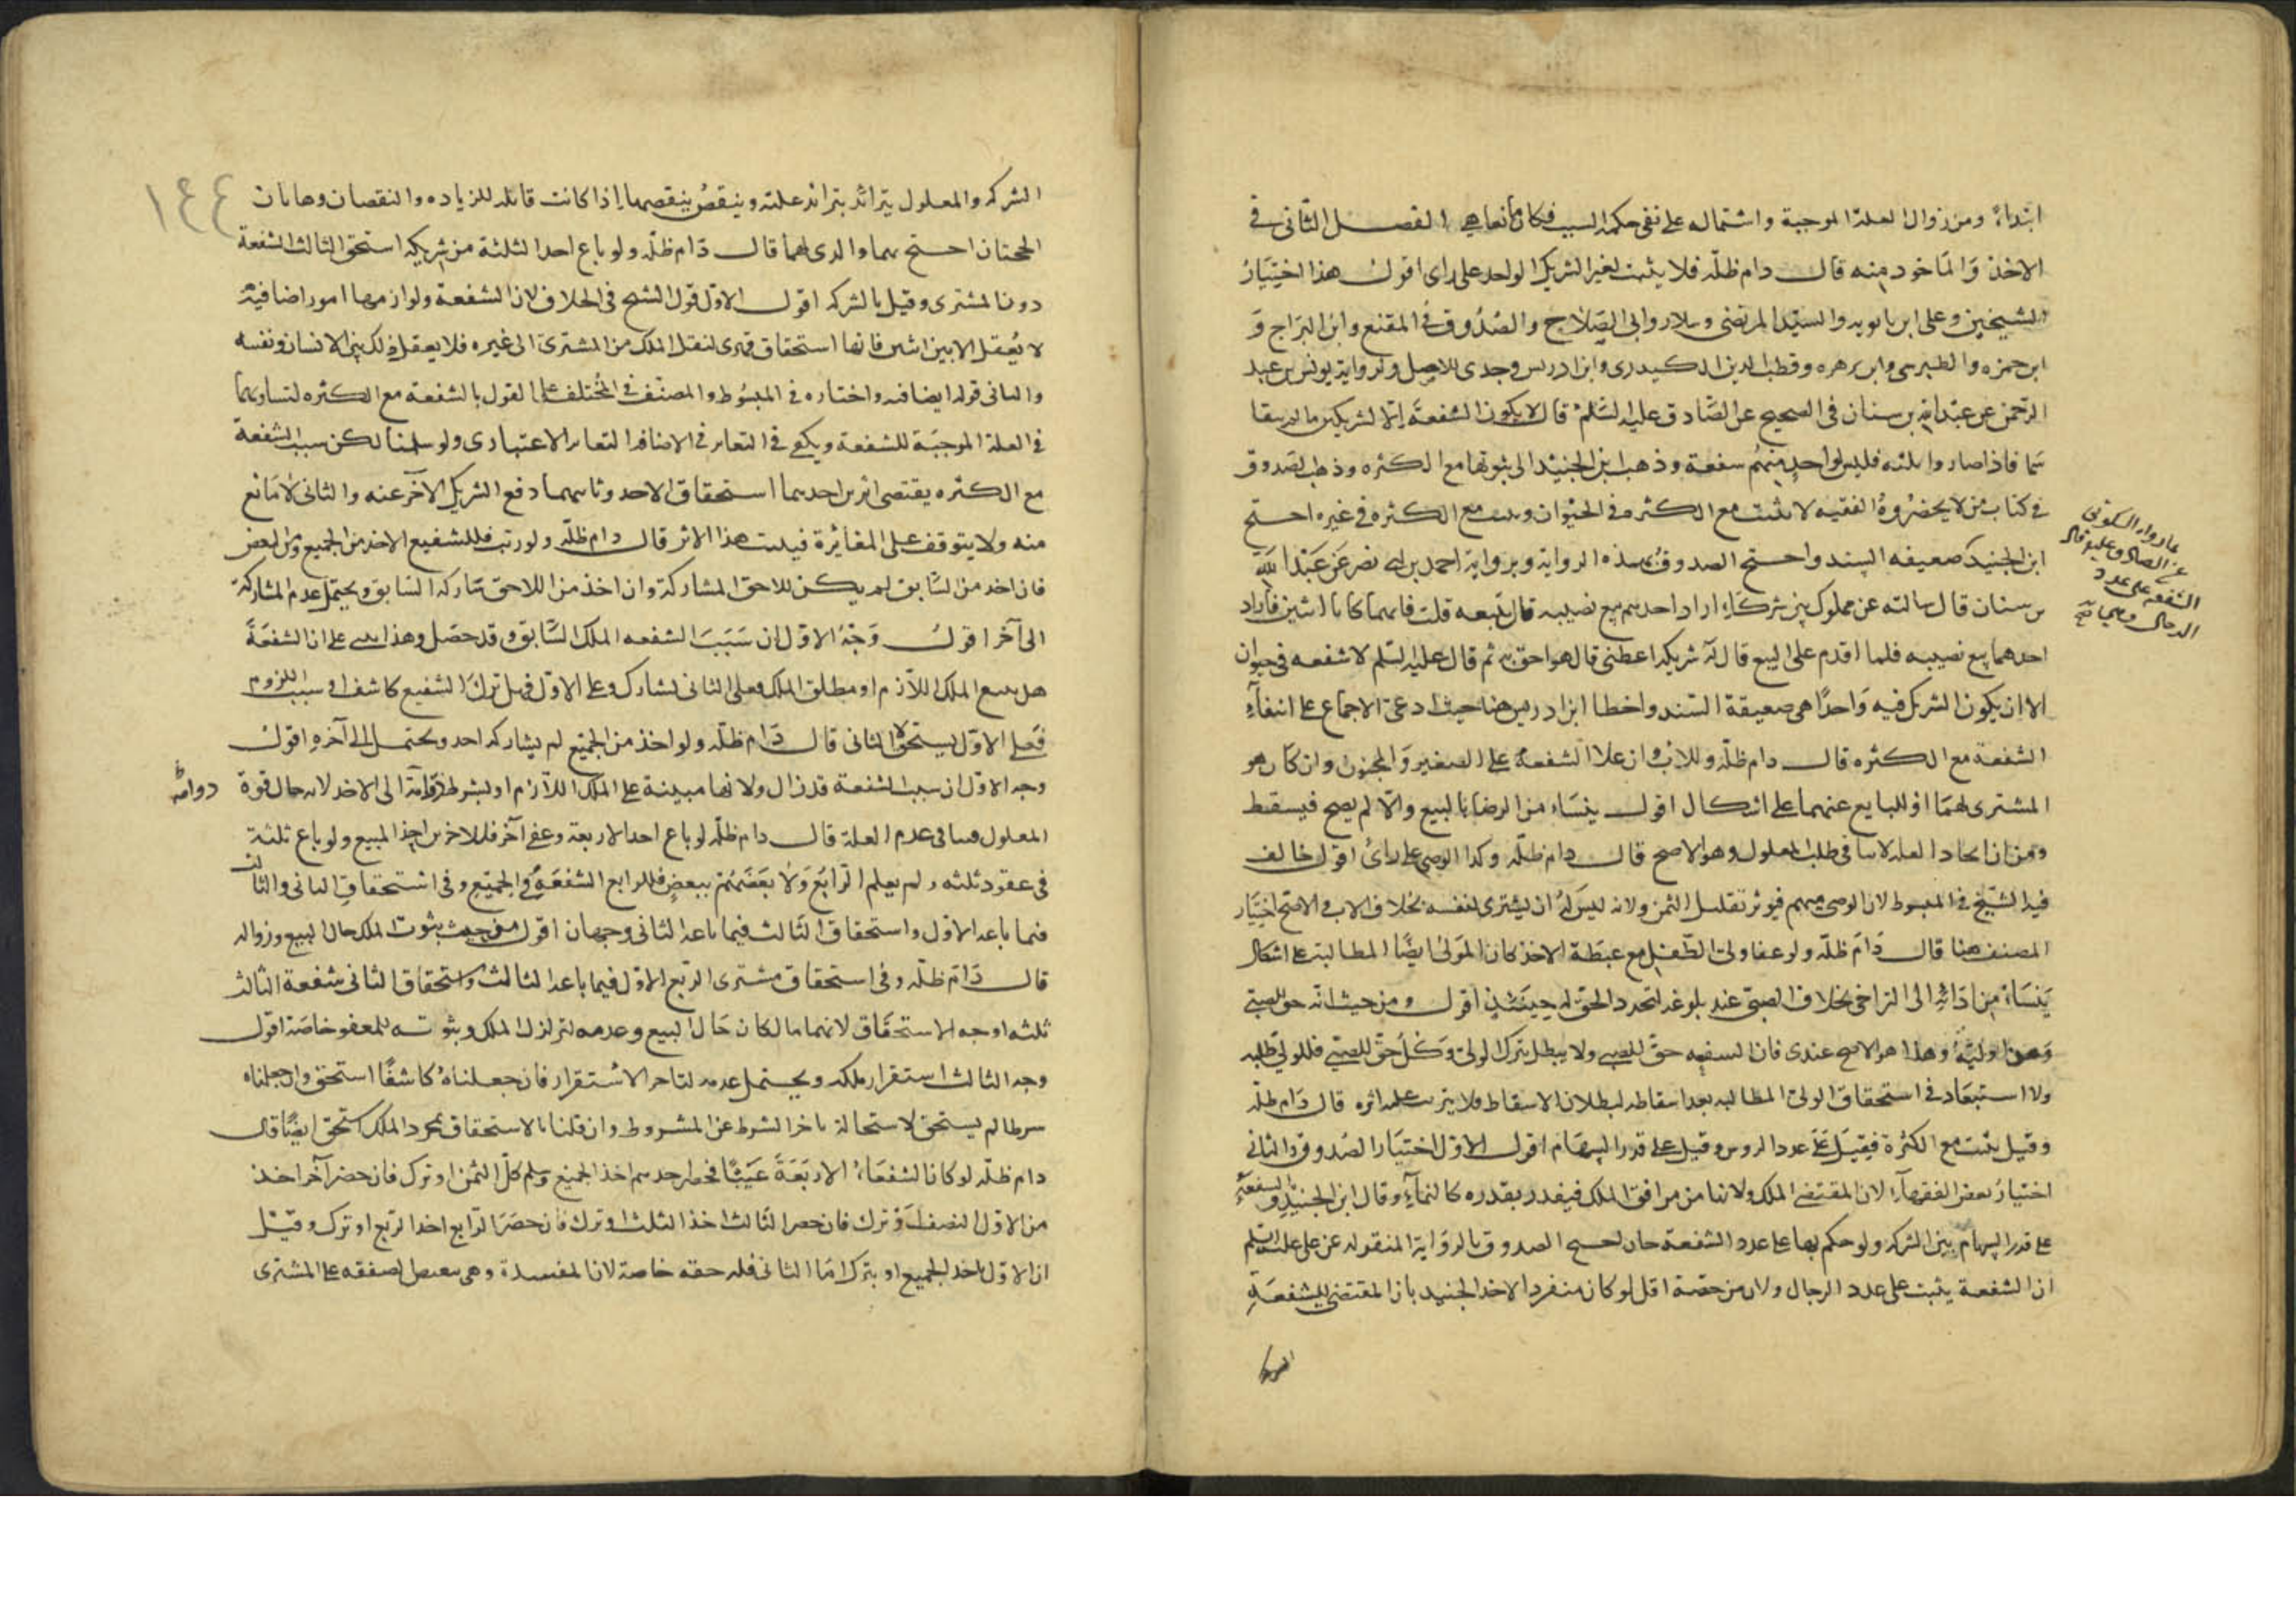 ابتداءً ومن زوال العلة الموجبة واشتماله على نفى حكمة السبب فكان مانعا الفصل الثانى فى
الاخذ والماخود منه قال دام ظله فلا يثبت لغير الشريك الواحد على راى اقول هذا اختيار
الشيخين وعلى ابن بابويه والسيد المرتضى وسلار وابى الصلاح والصدوق فى المقنع وابن البراج و
ابن حمزه والطبرسى وابن زهره وقطب الدين الكيدرى وابن ادريس وجدى للاصل ولرواية يونس بن عبد
الرحمن عن عبد الله بن سنان فى الصحيح عن الصادق عليه السلم قال لا يكون الشفعة الا لشريكين ما لم يتقا
سما فاذا صاروا ثلثه فليس لواحد منهم شفعة وذهب ابن الجنيد الى ثبوتها مع الكثره وذهب الصدوق
فى كتاب من لا يحضره الفقيه لا تثبت مع الكثره فى الحيوان وتثبت مع الكثرة فى غيره احتج
ابن الجنيد
بما رواه السكونى
عن الصادق عليه قال
الشفعه على عدد
الرجال وهى صح
ضعيفه السند واحتج الصدوق بهذه الرواية وبرواية احمد بن ابى نصر عن عبد الله
بن سنان قال سالته عن مملوك بين شركاء اراد احدهم بيع نصيبه قال يبيعه قلت فانهما كانا اثنين فاراد
احدهما بيع نصيبه فلما اقدم على البيع قال له شريكه اعطنى قال هو احق به ثم قال عليه السلم لا شفعه فى حيوان
الا ان يكون الشريك فيه واحدًا هى ضعيفة السند واخطا ابن ادريس هنا حيث ادعى الاجماع على انتفآء
الشفعة مع الكثره قال دام ظله وللاب وان علا الشفعة على الصغير والمجنون وان كان هو
المشترى لهما او البايع عنهما على اشكال اقول ينشاء من الرضا بالبيع والا لم يصح فيسقط
ومن ان ايجاد العله لا ينافى طلب المعلول وهو الاصح قال دام ظله وكذا الوصى على راى اقول خالف
فيه الشيخ فى المبسوط لان الوصى متهم فيوثر تقليل الثمن ولانه ليس له ان يشترى لنفسه بخلاف الاب والاصح اختيار
المصنف هنا قال دام ظله ولو عفا ولى الطفل مع غبطة الاخذ كان للمولى ايضًا المطالبة على اشكال
ينشاء من ادائه الى التراخى بخلاف الصبى عند بلوغه لتجدد الحق له حينئذ اقول ومن حيث انه حق للصبى
وهذا وليه وهذا هو الاصح عندى فان الشفعه حق للصبى ولا يبطل بترك الولى وكل حق للصبى فللولى طلبه
ولا استبعاد فى استحقاق الولى المطالبه بعد اسقاطه لبطلان الاسقاط فلا يترتب عليه اثره قال دام ظله
وقيل يثبت مع الكثرة فقيل على عدد الروس وقيل على قدر السهام اقول الاول اختيار الصدوق والثانى
اختيار بعض الفقهآء لان المقتضى الملك ولانها من مرافق الملك فيقدر بقدره كالنمآء وقال ابن الجنيد والشفعة
على قدر السهام بين الشركه ولو حكم بها على عدد الشفعة جاز احتج الصدوق بالرواية المنقوله عن على عليه السلم
ان الشفعة يثبت على عدد الرجال ولان من حصته اقل لو كان منفردا لاخذ الجنيد بان المقتضى للشفعة
الشركه
١٤٤
الشركه والمعلول يتزائد بتزائد علته وينقص بنقصها اذا كانت قابله للزياده والنقصان وهاتان
الحجتان احتج بهما والدى لهما قال دام ظله ولو باع احد الثلثة من شريكه استحق الثالث الشفعة
دون المشترى وقيل بالشركه اقول الاول قول الشيخ فى الخلاف لان الشفعة ولوازمها امور اضافية
لا يعقل الا بين اثنين فانها استحقاق قهرى لنقل الملك من المشترى الى غيره فلا يعقل ذلك بين الانسان ونفسه
والثانى قوله ايضا فيه واختاره فى المبسوط والمصنف فى المختلف على القول بالشفعة مع الكثره لتساويهما
فى العلة الموجبة للشفعة ويكفى فى التغاير فى الاضافه التغاير الاعتبارى ولو سلمنا لكن سبب الشفعة
مع الكثره يقتضى اثرين احدهما استحقاق الاخذ وثانيهما دفع الشريك الآخر عنه والثانى لا مانع
منه ولا يتوقف على المغائرة فيثبت هذا الاثر قال دام ظله ولو رتب فللشفيع الاخذ من الجميع ومن البعض
فان اخذ من السابق لم يكن للاحق المشاركة وان اخذ من اللاحق شاركه السابق ويحتمل عدم المشاركة
الى آخر اقول وجه الاول ان سبب الشفعه الملك السابق وقد حصل وهذا يبنى على ان الشفعة
هل يتبع الملك اللازم او مطلق الملك فعلى الثانى تشارك وعلى الاول فهل ترك الشفيع كاشف او سبب اللزوم
فعلى الاول يستحق لا الثانى قال دام ظله ولو اخذ من الجميع لم يشاركه احد ويحتمل الى آخره اقول
وجه الاول ان سبب الشفعة قد زال ولانها مبينة على الملك اللازم او بشرط دوامه الى الاخذ لانه حال قوة
دوامه
المعلول ينافى عدم العلة قال دام ظله لو باع احد الاربعة وعفى آخر فللاخرين اخذ المبيع ولو باع ثلثة
فى عقود ثلثه ولم يعلم الرابع ولا بعضهم ببعض فللرابع الشفعة فى الجميع وفى استحقاق الثانى والثالث
فيما باعه الاول واستحقاق الثالث فيما باعه الثانى وجهان اقول من حيث ثبوت الملك حال البيع وزواله
قال دام ظله وفى استحقاق مشترى الربع الاول فيما باعه الثالث واستحقاق الثانى شفعة الثالث
ثلثه اوجه الاستحقاق لانهما مالكان حال البيع وعدمه لتزلزل الملك وثبوته للمعفو خاصة اقول
وجه الثالث استقرار ملكه ويحتمل عدمه لتاخر الاستقرار فان جعلناه كاشفًا استحق وان جعلناه
شرطا لم يستحق لاستحالة تاخر الشرط عن المشروط وان قلنا بالاستحقاق بمجرد الملك استحق ايضًا قال
دام ظله لو كان الشفعاء الاربعة غيبًا فحضر احدهم اخذ الجميع وسلم كل الثمن او ترك فان حضر آخر اخذ
من الاول النصف او ترك فان حضر الثالث اخذ الثلث او ترك فان حضر الرابع اخذ الربع او ترك وقيل
ان الاول ياخذ الجميع او يترك اما الثانى فله حقه خاصة لان المفسدة وهى تبعيض الصفقه على المشترى